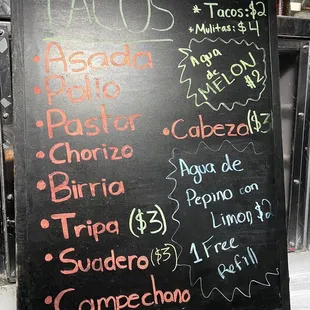 TACOS
* Tacos: $2
* Mulitas: $4
• Asada
• Pollo
• Pastor
• Chorizo
• Birria
• Tripa ($3)
• Suadero ($3)
• Campechano
Agua
de
MELON
$2
• Cabeza ($3)
Agua de
Pepino con
Limon $2
1 Free
Refill